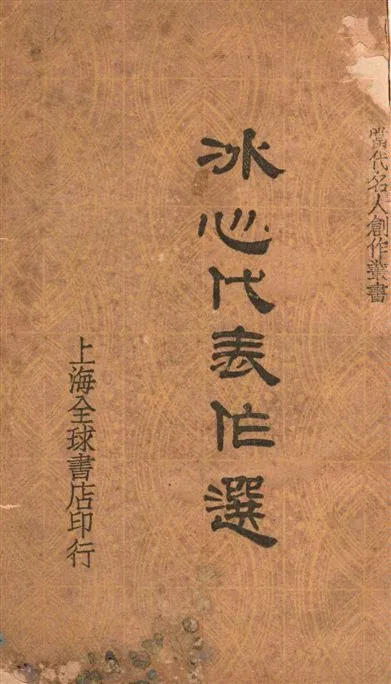 當代名人創作叢書
冰心代表作選
上海全球書店印行